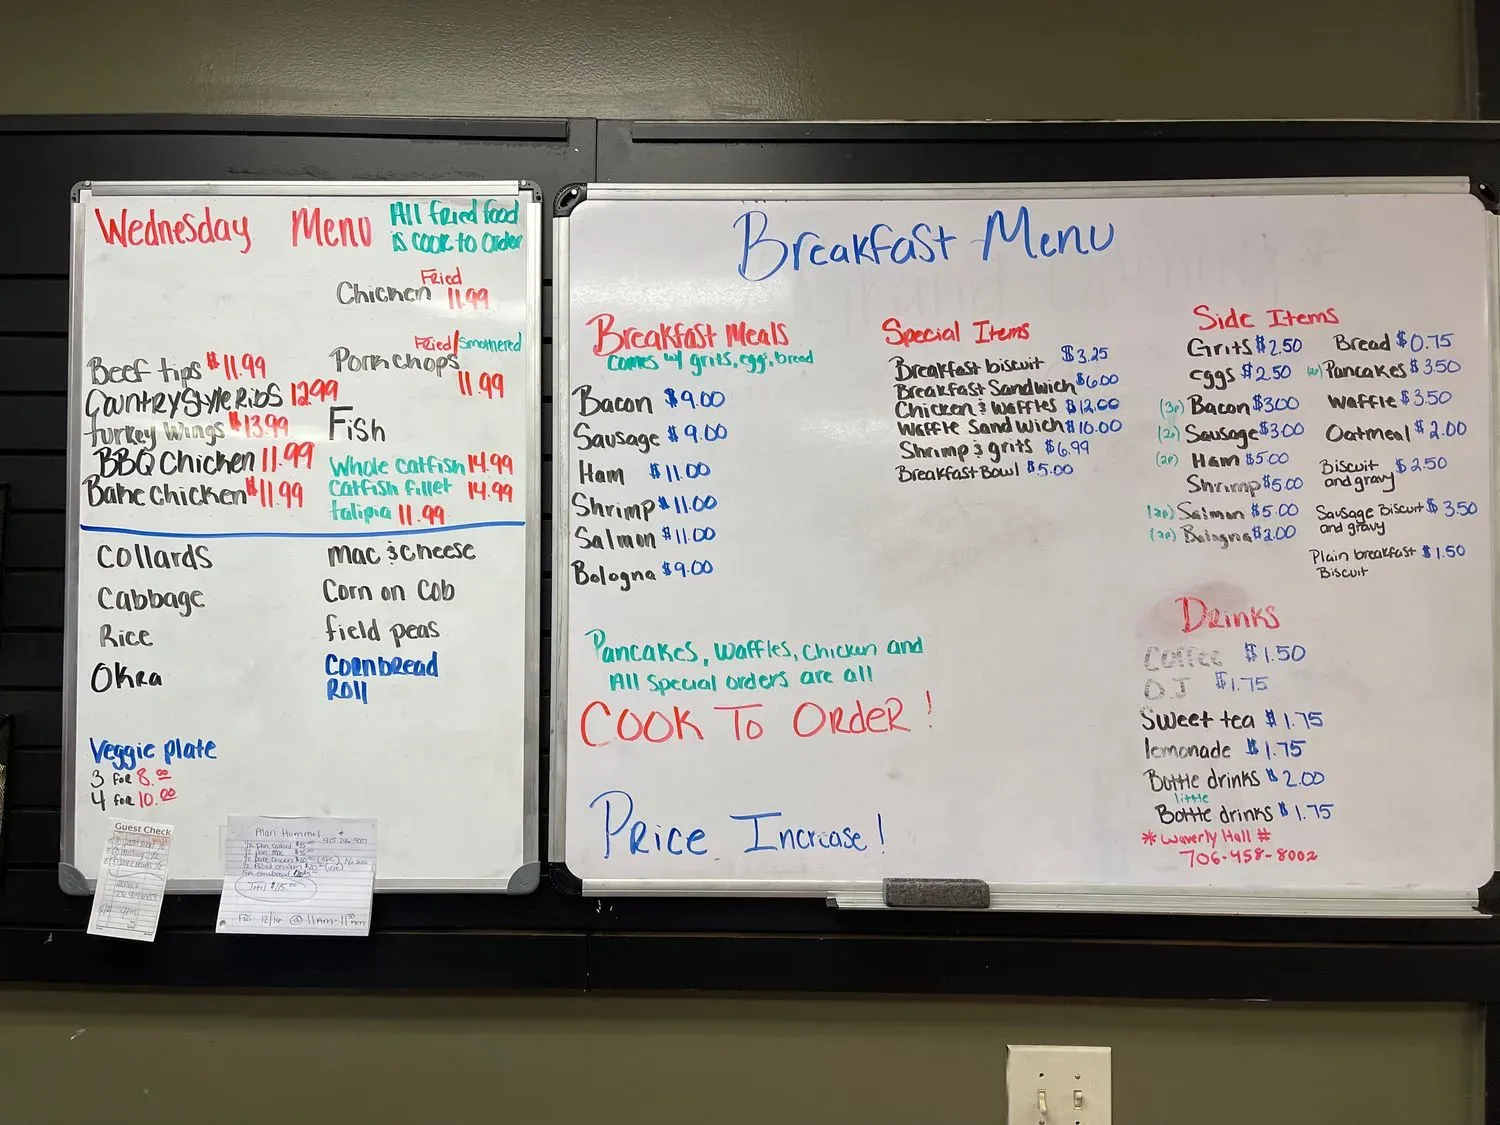 Wednesday Menu
All fried food
is cook to order
Chicken Fried 11.99
Beef tips $11.99
Country Style Ribs 12.99
turkey wings $13.99
BBQ Chicken 11.99
Bake Chicken $11.99
Pork chops Fried/Smothered
11.99
Fish
Whole catfish 14.99
Catfish fillet 14.99
talipia 11.99
Collards
Cabbage
Rice
Okra
Mac & Cheese
Corn on Cob
field peas
Cornbread
Roll
Veggie plate
3 for 8.00
4 for 10.00
Guest Check
Alan Hummel
Total
Fri 12/16 @ 11am-11:30am
Breakfast Menu
Breakfast Meals
comes w/ grits, egg, bread
Bacon $9.00
Sausage $9.00
Ham $11.00
Shrimp $11.00
Salmon $11.00
Bologna $9.00
Special Items
Breakfast biscuit $3.25
Breakfast Sandwich $6.00
Chicken & Waffles $12.00
Waffle Sandwich $10.00
Shrimp & grits $6.99
Breakfast Bowl $5.00
Side Items
Grits $2.50
eggs $2.50
(3p) Bacon $3.00
(2p) Sausage $3.00
(2p) Ham $5.00
Shrimp $5.00
(2p) Salmon $5.00
(2p) Bologna $2.00
Bread $0.75
(2p) Pancakes $3.50
Waffle $3.50
Oatmeal $2.00
Biscuit $2.50
and gravy
Sausage Biscuit $3.50
and gravy
Plain breakfast $1.50
Biscuit
Pancakes, Waffles, Chicken and
All special orders are all
COOK TO ORDER!
Price Increase!
Drinks
Coffee $1.50
OJ $1.75
Sweet tea $1.75
lemonade $1.75
Bottle drinks $2.00
little
Bottle drinks $1.75
* Waverly Hall #
706-458-8002